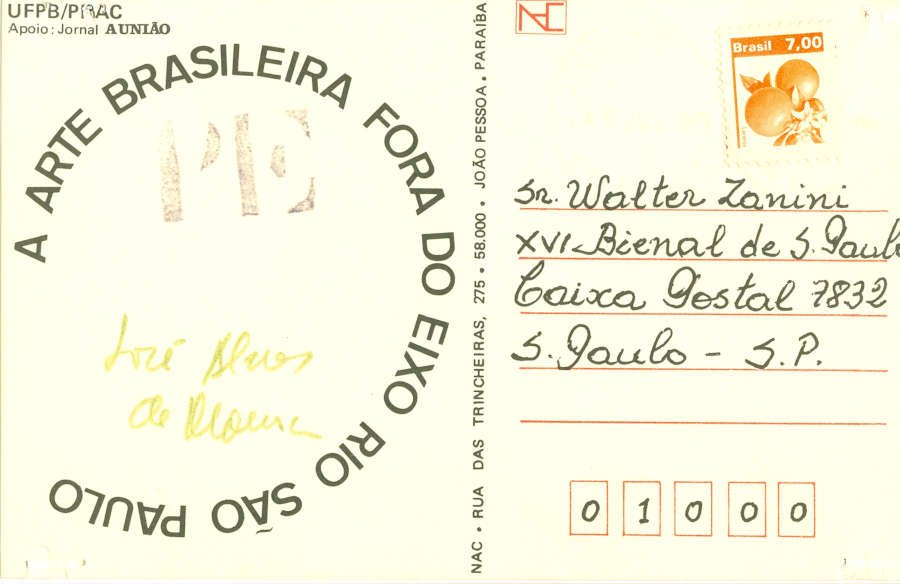 UFPB/PRAC
Apoio: Jornal A UNIÃO
A ARTE BRASILEIRA FORA DO EIXO RIO SÃO PAULO
PE
José Alves
de Moura
NAC • RUA DAS TRINCHEIRAS, 275 • 58.000 • JOÃO PESSOA • PARAÍBA
Brasil 7,00
Sr. Walter Zanini
XVI-Bienal de S. Paulo
Caixa Postal 7832
S. Paulo - S.P.
0 1 0 0 0